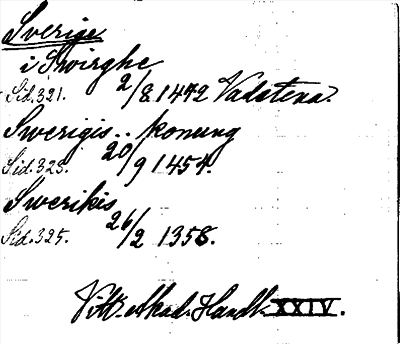 Sverige
i Swirghe
Sid. 321. 2/8 1472 Vadstena.
Swerigis .. konung
Sid. 323. 20/9 1454.
Swerikis
Sid. 325. 26/2 1358.
Vitt. Akad. Handl. XXIV.